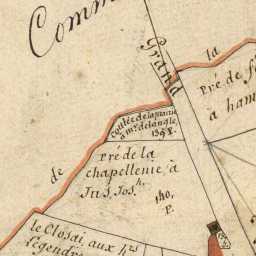 Comm
Grand
la
Pré de
à ham
Coulée de la prairie
a mr. delangle
1398.
de
Pré de la
chapellenie à
Jus. Jos.h.
140.
P.
le Closai aux hrs
Legendre